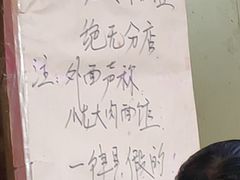 绝无分店
注：外面声称
小龙大肉面馆
一律是假的